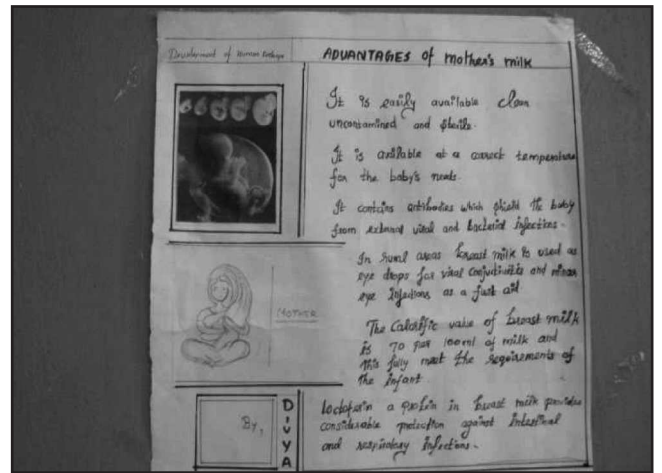 Development of Human Embryo
ADVANTAGES of mother's milk
It is easily available clean
uncontamined and sterile.
It is available at a correct temperature
for the baby's needs.
It contains antibodies which shield the baby
from external viral and bacterial infections.
In rural areas breast milk is used as
eye drops for viral conjuctivitis and minor
eye infections as a first aid
The Calorific value of breast milk
is 70 per 100ml of milk and
this fully meet the requirements of
the infant
MOTHER
loctoferin a protein in breast milk provides
considerable protection against intestinal
and respiratory infections.
By,
DIVYA